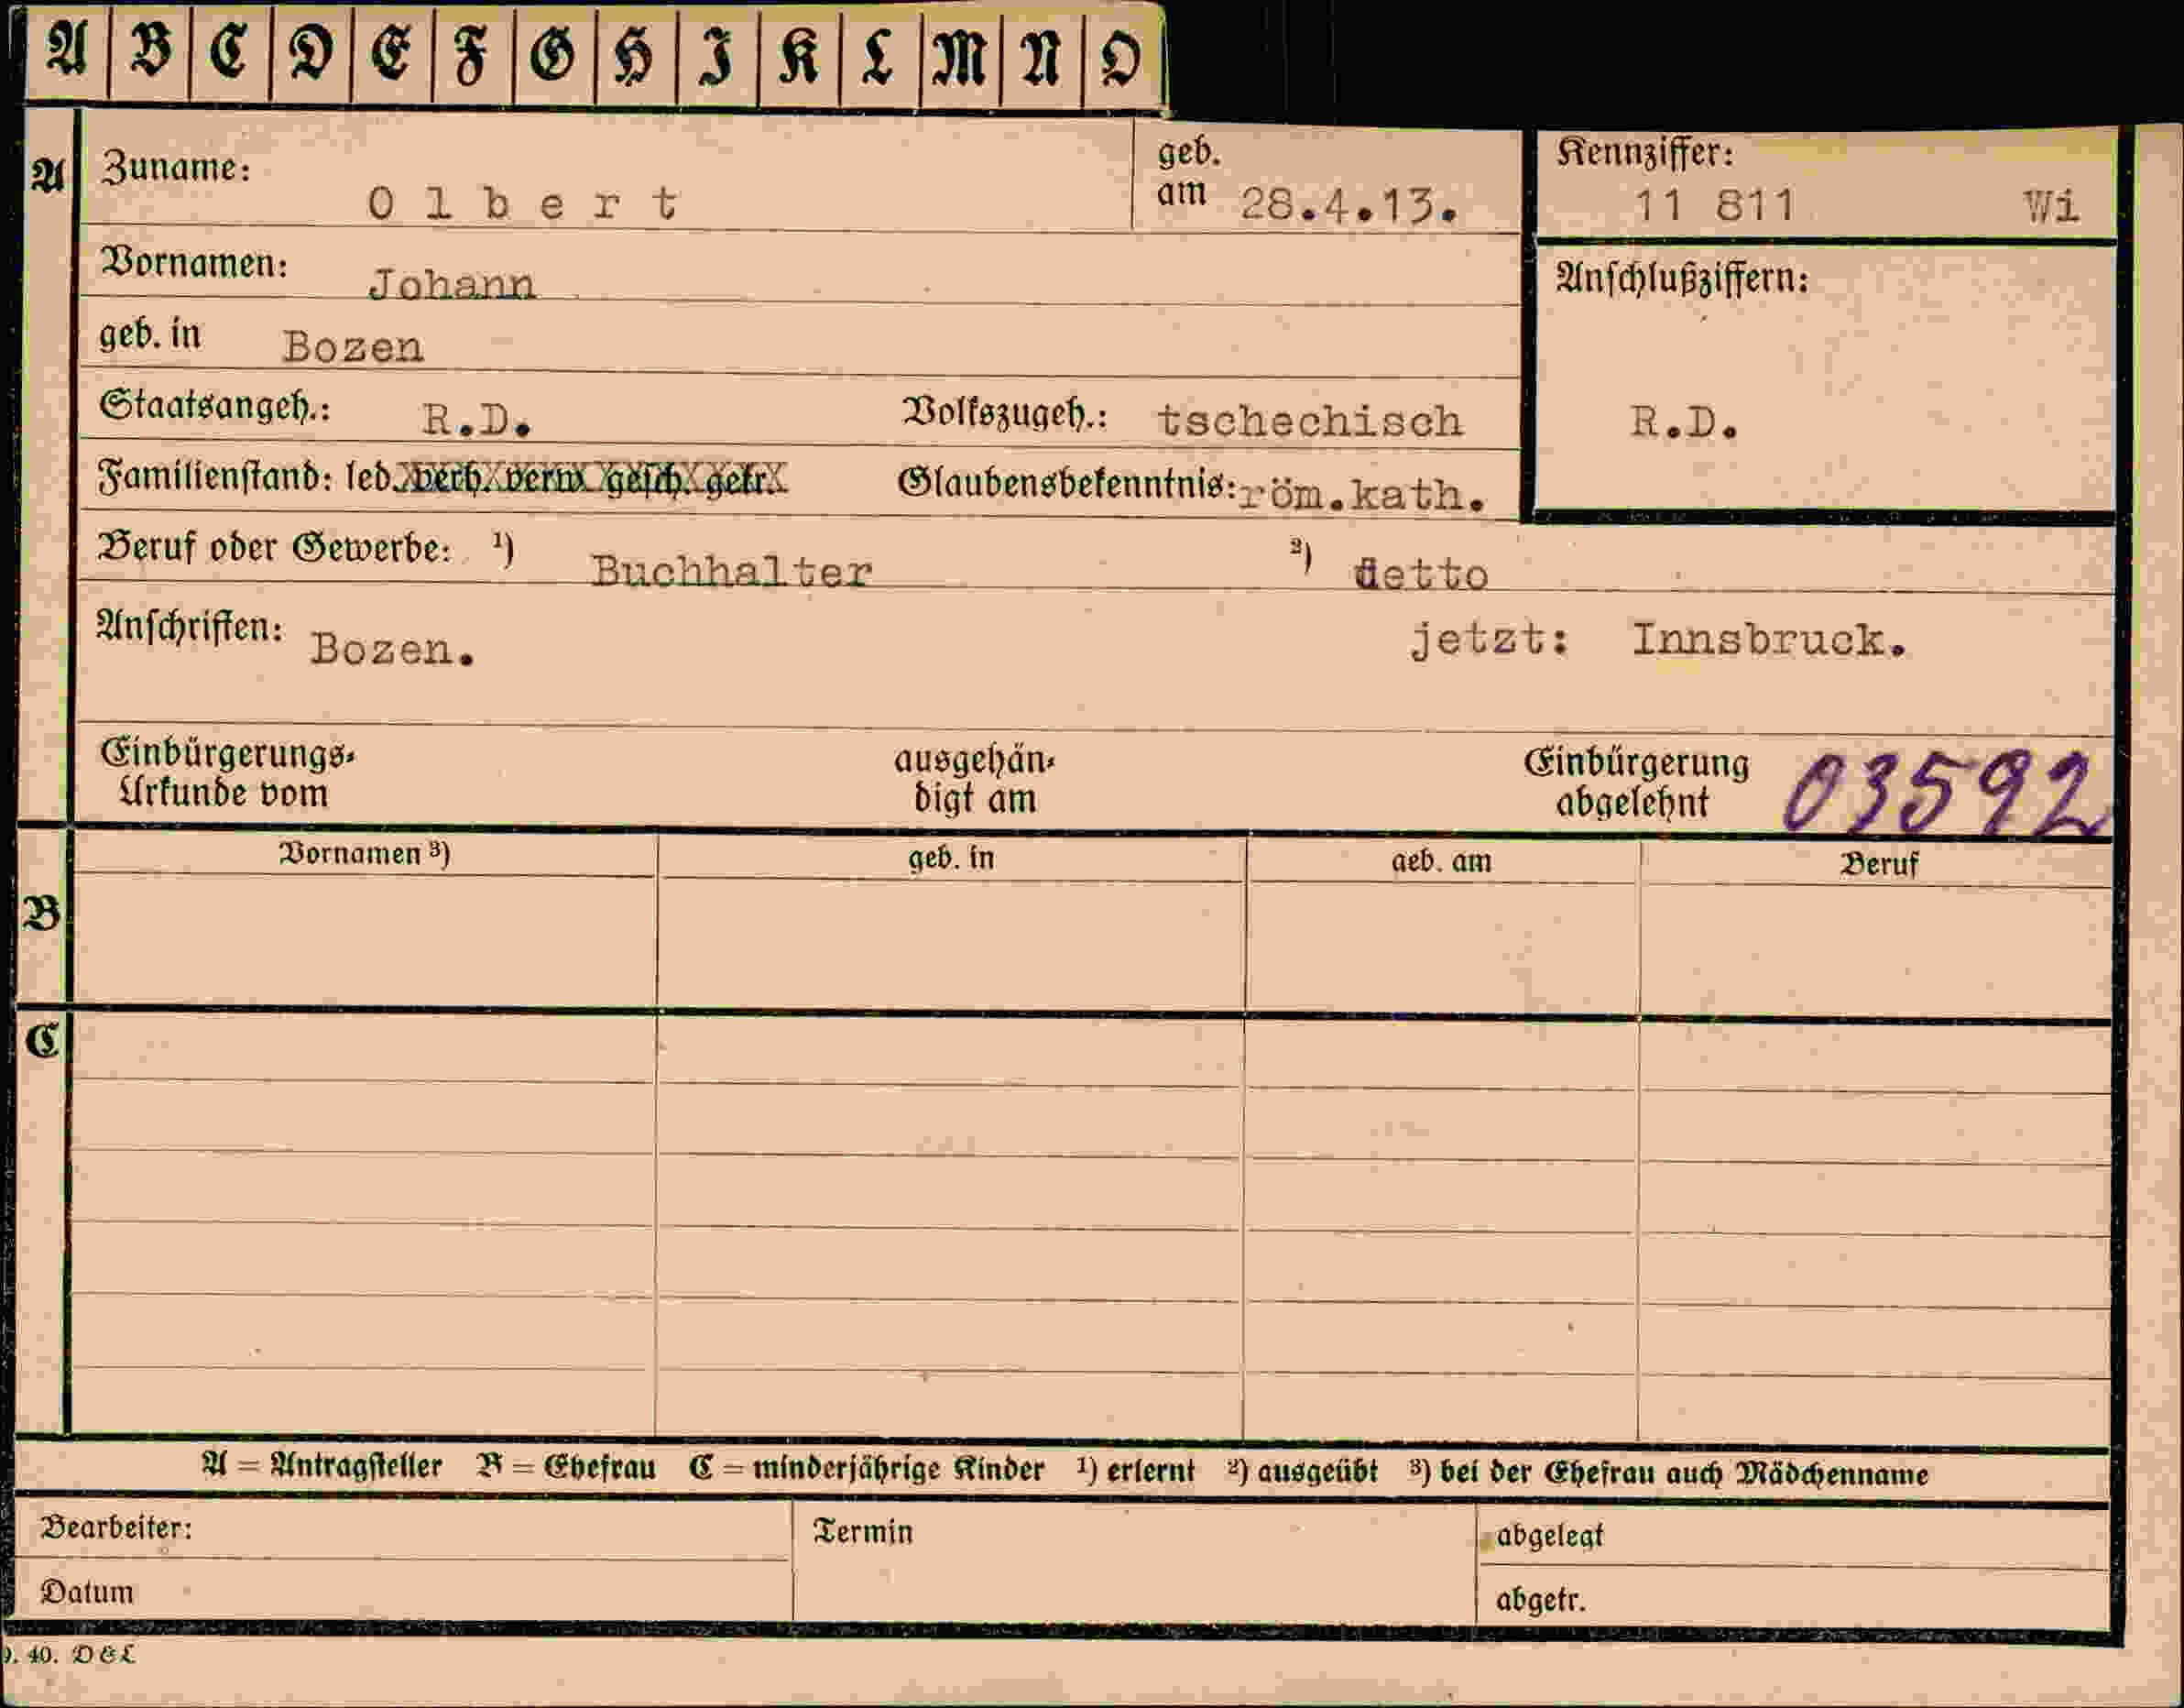 A B C D E F G H I K L M N O
A Zuname: Olbert geb. am 28.4.13. Kennziffer: 11 811 Wi
Vornamen: Johann Anschlußziffern:
geb. in Bozen
Staatsangeh.: R.D. Volkszugeh.: tschechisch R.D.
Familienstand: led. verh. verw. gesch. getr. Glaubensbekenntnis: röm.kath.
Beruf oder Gewerbe: 1) Buchhalter 2) detto
Anschriften: Bozen. jetzt: Innsbruck.
Einbürgerungs- ausgehän- Einbürgerung 03592
Urkunde vom digt am abgelehnt
Vornamen 3) geb. in geb. am Beruf
B
C
A = Antragsteller B = Ehefrau C = minderjährige Kinder 1) erlernt 2) ausgeübt 3) bei der Ehefrau auch Mädchenname
Bearbeiter: Termin abgelegt
Datum abgetr.
9. 40. D & L